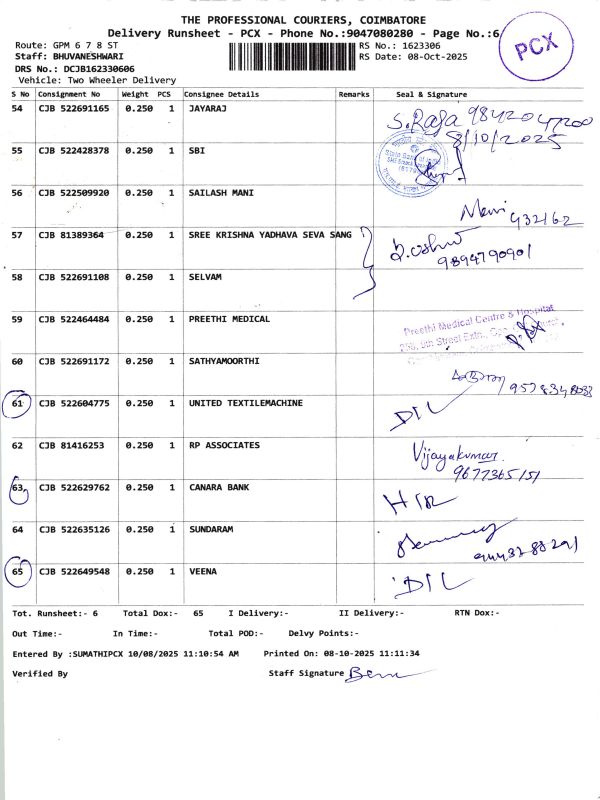 THE PROFESSIONAL COURIERS, COIMBATORE
Delivery Runsheet - PCX - Phone No.:9047080280 - Page No.:6
PCX
Route: GPM 6 7 8 ST
RS No.: 1623306
Staff: BHUVANESHWARI
RS Date: 08-Oct-2025
DRS No.: DCJB162330606
Vehicle: Two Wheeler Delivery
S No Consignment No Weight PCS Consignee Details Remarks Seal & Signature
54 CJB 522691165 0.250 1 JAYARAJ S. Raja 9842047200
8/10/2025
55 CJB 522428378 0.250 1 SBI
56 CJB 522509920 0.250 1 SAILASH MANI Mani 932162
57 CJB 81389364 0.250 1 SREE KRISHNA YADHAVA SEVA SANG
9894790901
58 CJB 522691108 0.250 1 SELVAM
59 CJB 522464484 0.250 1 PREETHI MEDICAL Preethi Medical Centre & Hospital
60 CJB 522691172 0.250 1 SATHYAMOORTHI
61 CJB 522604775 0.250 1 UNITED TEXTILEMACHINE D/L
62 CJB 81416253 0.250 1 RP ASSOCIATES Vijayakumar
9677365151
63 CJB 522629762 0.250 1 CANARA BANK
64 CJB 522635126 0.250 1 SUNDARAM
65 CJB 522649548 0.250 1 VEENA D/L
Tot. Runsheet:- 6 Total Dox:- 65 I Delivery:- II Delivery:- RTN Dox:-
Out Time:- In Time:- Total POD:- Delvy Points:-
Entered By :SUMATHIPCX 10/08/2025 11:10:54 AM Printed On: 08-10-2025 11:11:34
Verified By Staff Signature